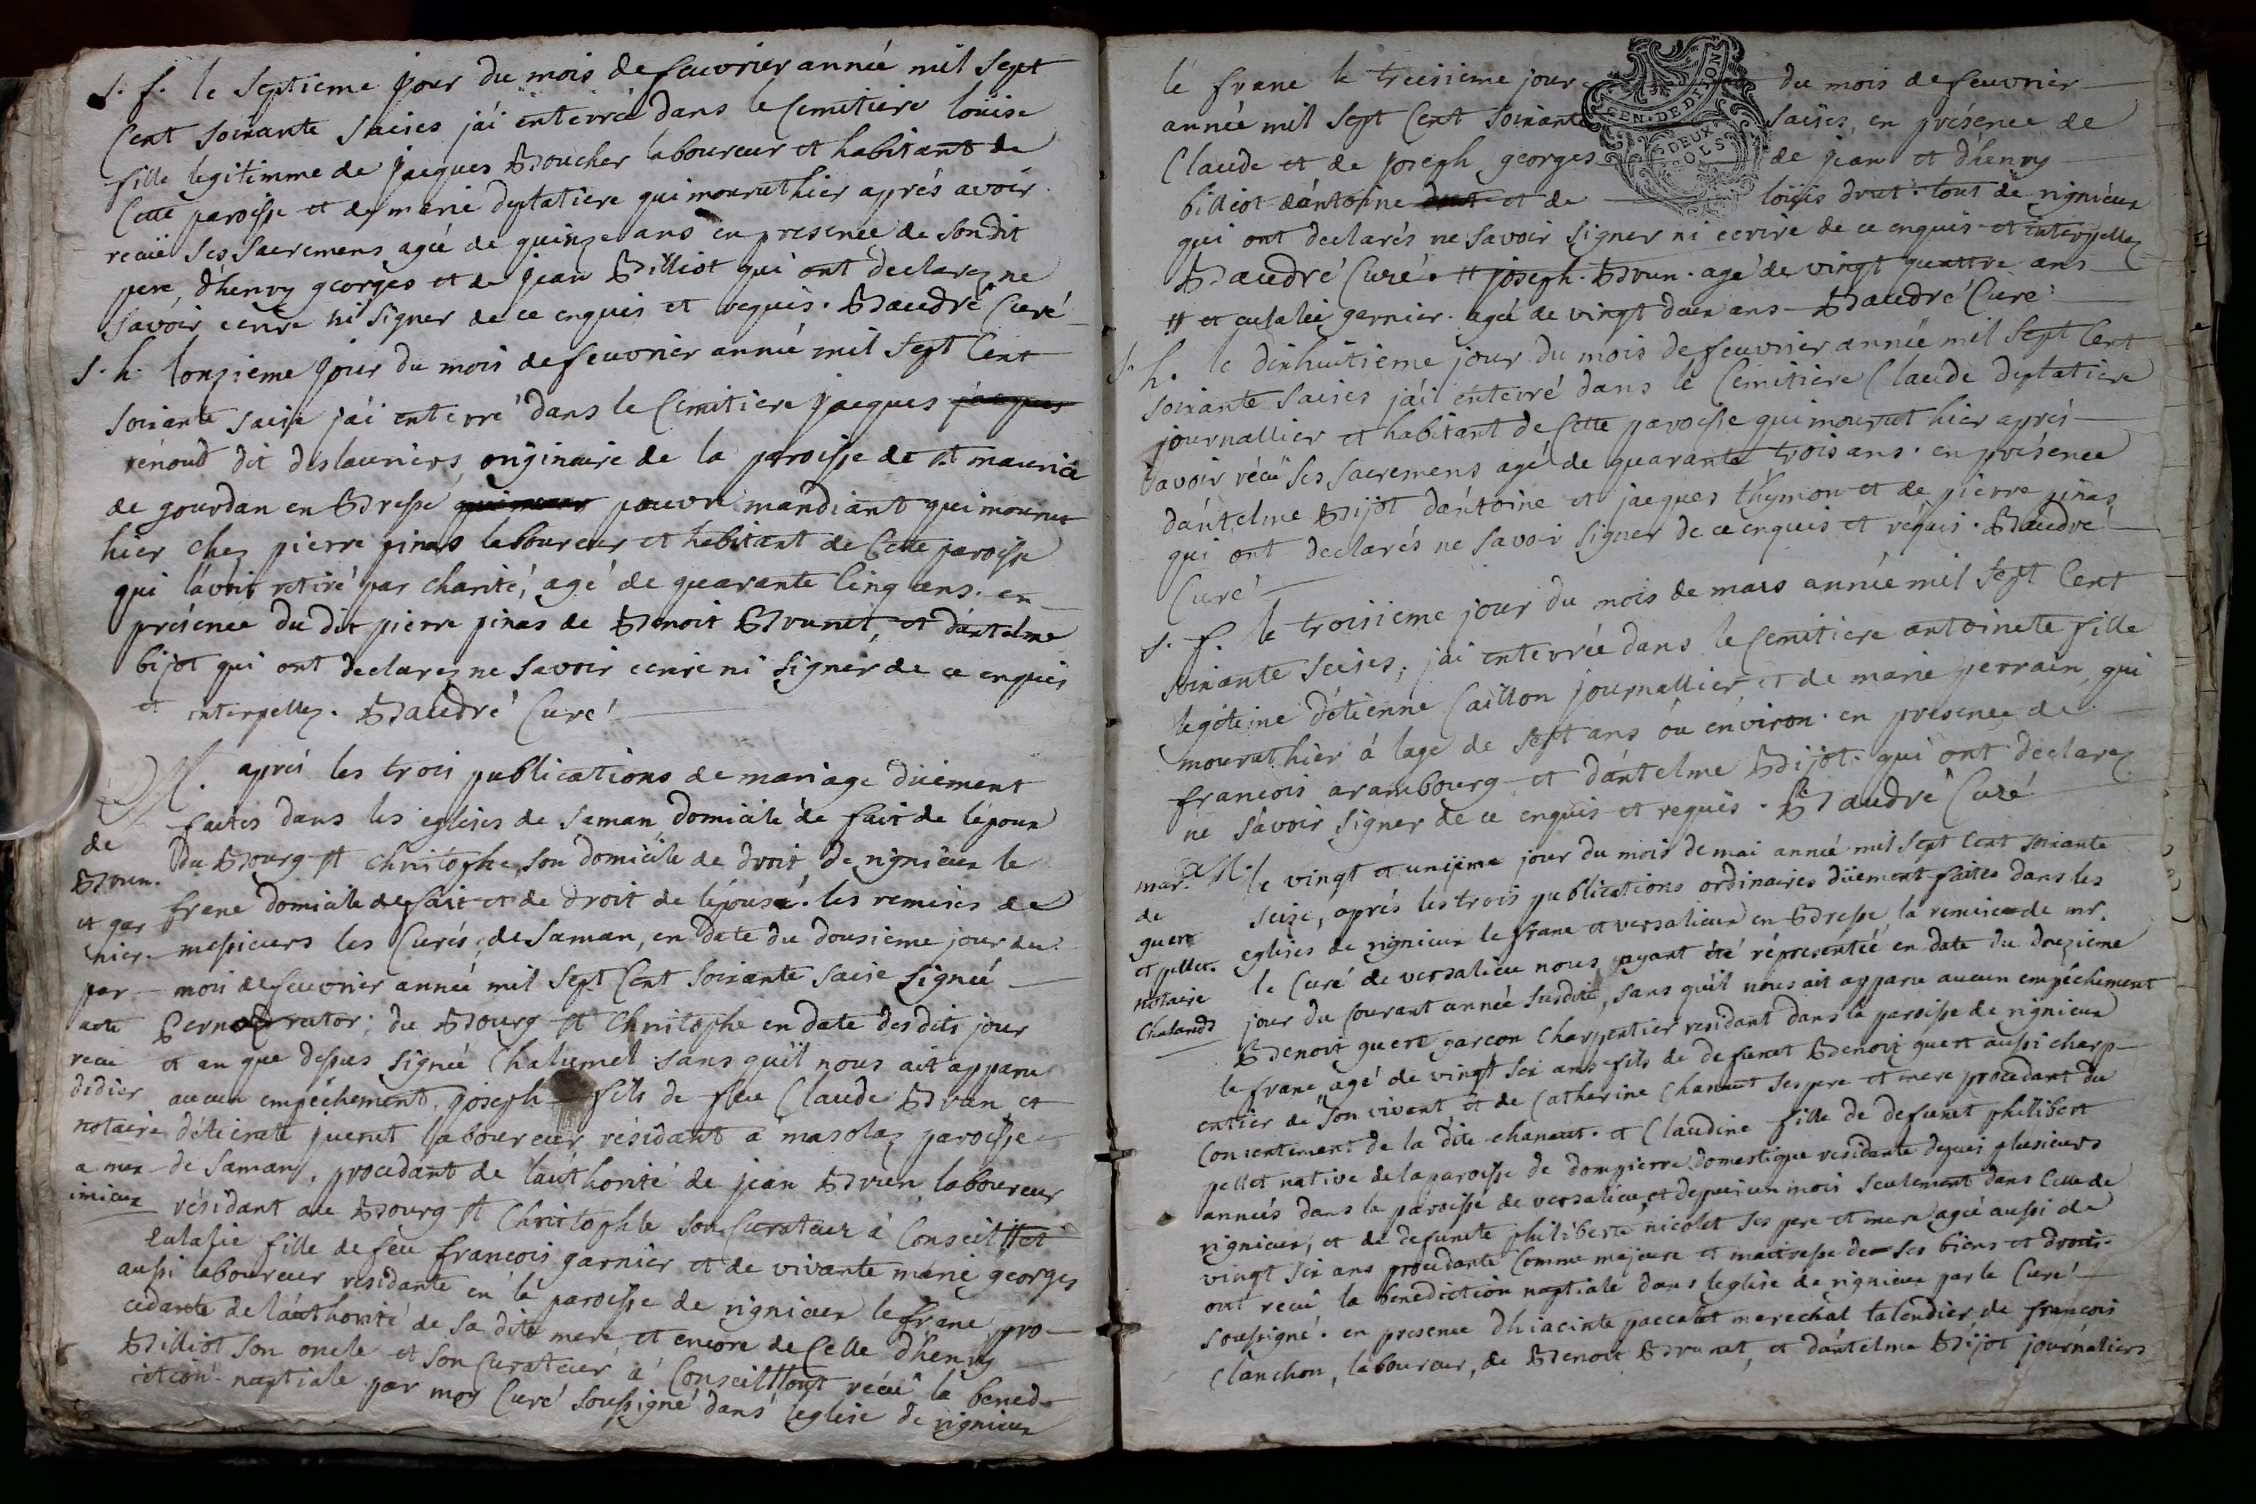 s. f. le septieme jour du mois de feuvrier année mil sept
Cent soixante saises j'ai enterrée dans le Cemitiere loüise
fille legitimme de jacques Boucher laboureur et habitant de
Cette paroisse et de marie deplatiere qui mourut hier aprés avoir
recüe ses sacremens agée de quinze ans en presence de son dit
pere, d'henry georges et de jean Billiot qui ont declarez ne
savoir ecrire ni signer de ce enquis et requis. Baudré Curé
s. h. lonzieme jour du mois de feuvrier année mil sept Cent
soixante saise j'ai enterré dans le Cemitiere jacques jacques
renoud dit deslauriers originaire de la paroisse de st maurice
de gourdan en Bresse pauvre mandiant qui mourut
hier chez pierre pinas laboureur et habitant de Cette paroisse
qui l'avoit retiré par charité, agé de quarante Cinq ans. en
présence du dit pierre pinas de Benoit Brunet, et d'antelme
bijot qui ont declarez ne savoir ecrire ni signer de ce enquis
et interpellez. Baudré Curé
M. aprés les trois publications de mariage düement
faites dans les eglises de saman domicile de fait de l'epoux
de
du Bourg st christophe son domicile de droit, de rignieux le
Brun.
franc domicile de fait et de droit de l'épouse. les remises de
et gar
messieurs les Curés, de saman, en date du dousieme jour du
nier
mois de feuvrier année mil sept Cent soixante saise signée
par
; du Bourg st Christophe en date desdits jour
acte
et an que dessus signée Chalumel sans qu'il nous ait apparu
recu
aucun empêchement. joseph fils de feu Claude Brun et
didier
juenet laboureur résidant a masolaz paroisse
notaire
de saman, procedant de l'authorité de jean Brun laboureur
a mex
résidant au Bourg st Christophle son Curateur à Conseil # et
imieux
Eulalie fille de feu francois garnier et de vivante marie georges
aussi laboureur residante en la paroisse de rignieux le franc, pro-
cedante de l'authorité de sa dite mere et encore de Celle d'henry
Billiot son oncle et son Curateur à Conseil # ont recü la bened-
iction nuptiale par moy Curé soussigné dans l'eglise de rignieux
lé franc le treisieme jour du mois de feuvrier
année mil sept Cent soixante saises, en présence de
Claude et de joseph georges de jean et d'henry
billiot d'antoine et de loüis drut. tout de rignieux
qui ont declarés ne savoir signer ni ecrire de ce enquis et interpellez
Baudré Curé. # joseph. Brun. agé de vingt quattre ans
# et eulalie garnier. agée de vingt deux ans Baudré Curé
EN·DE·DIJON
DEUX
SOLS
s. h. le dixhuitieme jour du mois de feuvrier année mil sept Cent
soixante saises j'ai enterré dans le Cemitiere Claude deplatiere
journallier et habitant de Cette paroisse qui mourut hier aprés
avoir récü ses sacremens agé de quarante trois ans. en présence
d'antelme Bijot d'antoine et jacques thymon et de pierre pinas
qui ont declarés ne savoir signer de ce enquis et réquis. Baudré
Curé
s. f. le troisieme jour du mois de mars année mil sept Cent
soixante seises, j'ai enterrée dans le Cemitiere antoinete fille
legitime d'etienne Caillon journallier et de marie perrain, qui
mourut hier à l'age de sept ans ou environ. en presence de
francois arambourg et d'antelme Bijot. qui ont declarez
ne savoir signer de ce enquis et requis. Baudré Curé
mar. M. le vingt et unijeme jour du mois de mai année mil sept Cent soixante
de
seize, aprés les trois publications ordinaires düement faites dans les
guere
eglises de rignieux le franc et versalieux en Bresse la remise de mr.
et pellet.
le Curé de versalieu nous ayant été répresentée en date du douzieme
notaire
jour du courant année susdite, sans qu'il nous ait apparu aucun empêchement
Chalands
Benoit guere garcon Charpentier residant dans la paroisse de rignieux
le franc agé de vingt six ans fils de defunct Benoit guere aussi charp-
entier de son vivant, et de Catherine Chanaut ses pere et mere procedant du
Consentement de la dite chanaut. et Claudine fille de defunct philibert
pellet native de la paroisse de dompierre domestique residante depuis plusieurs
années dans la paroisse de versalieu, et depuis un mois seulement dans Celle de
rignieux, et de defuncte philiberte nicolet ses pere et mere agée aussi de
vingt six ans procedante Comme majeure et maitresse de ses biens et droits.
ont recü la benediction nuptiale dans l'eglise de rignieux par le Curé
soussigné. en presence d'hiacinte paccalet marechal talendier, de francois
Clanchon, laboureur, de Benoit Brunet, et d'antelme Bijot journaliers